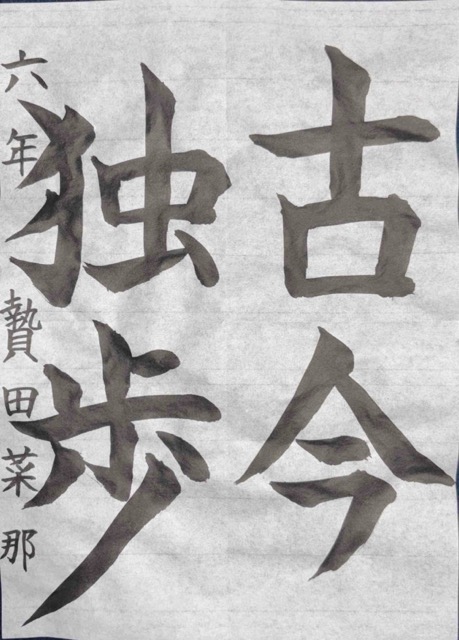 古今
独歩
六年 贄田菜那